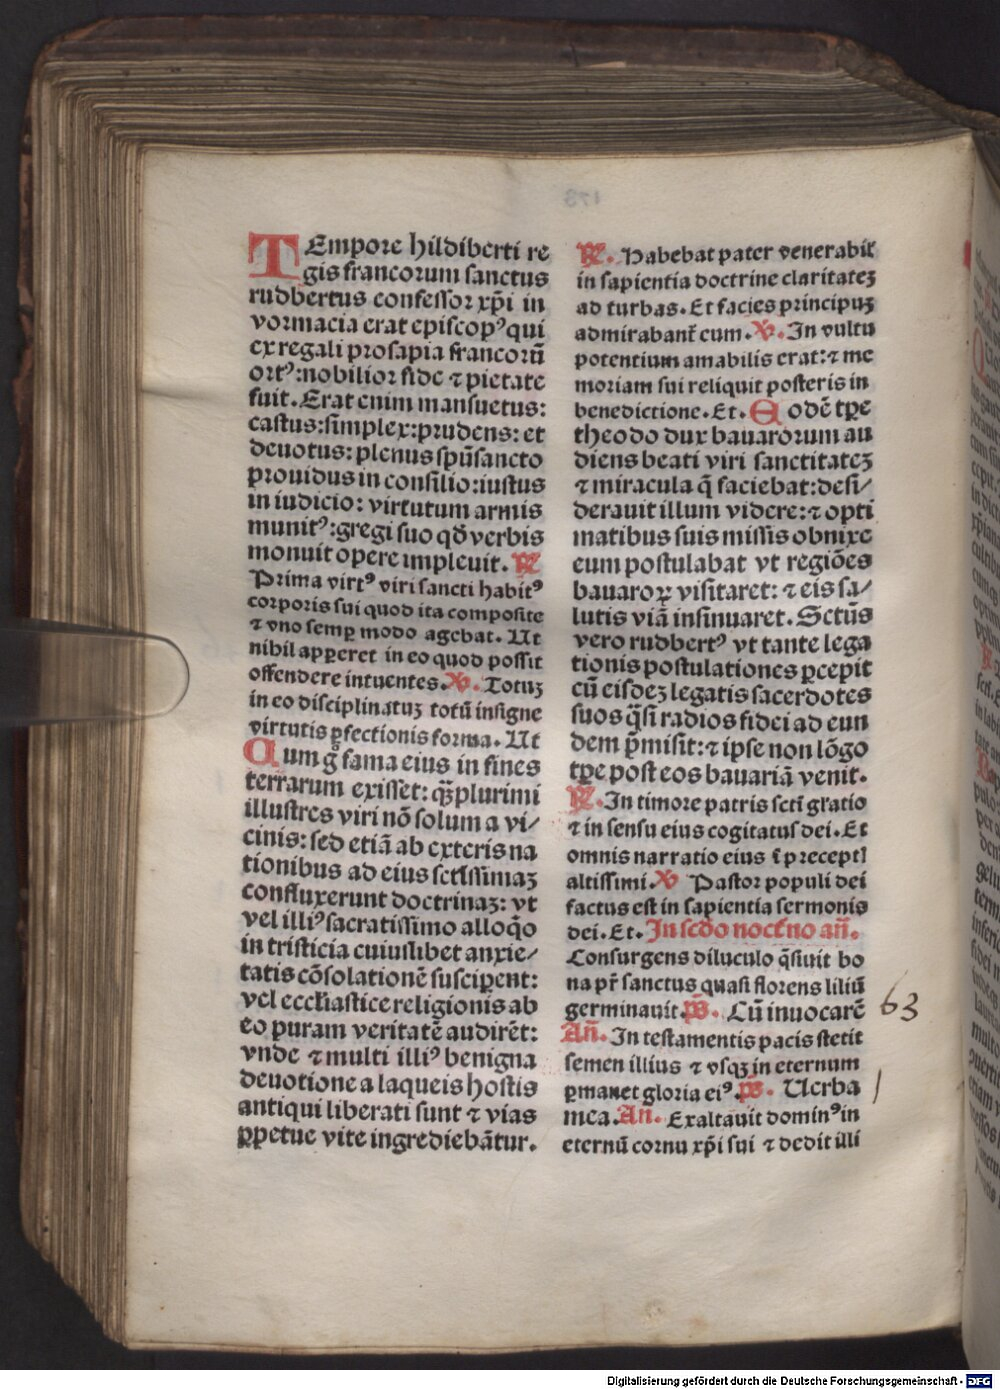 TEmpore hildiberti re
gis francorum sanctus
rudbertus confessor xp̄i in
vormacia erat episcopꝰ qui
ex regali prosapia francorū
ortꝰ: nobilior fide ⁊ pietate
fuit. Erat enim mansuetus:
castus: simplex: prudens: et
deuotus: plenus spūsancto
prouidus in consilio: iustus
in iudicio: virtutum armis
munitꝰ: gregi suo qd̄ verbis
monuit opere impleuit. R̄
Prima virtꝰ viri sancti habitꝰ
corporis sui quod ita composite
⁊ vno semꝑ modo agebat. Ut
nihil apꝑeret in eo quod possit
offendere intuentes. V̄. Totuꝫ
in eo disciplinatuꝫ totū insigne
virtutis ꝑfectionis forma. Ut
Cum g̊ fama eius in fines
terrarum exisset: qꝫplurimi
illustres viri nō solum a vi⸗
cinis: sed etiā ab exteris na
tionibus ad eius sctīssimaꝫ
confluxerunt doctrinaꝫ: vt
vel illiꝰ sacratissimo alloq̄o
in tristicia cuiuslibet anxie⸗
tatis cōsolationē susciperent:
vel eccl̄iastice religionis ab
eo puram veritatē audirēt:
vnde ⁊ multi illiꝰ benigna
deuotione a laqueis hostis
antiqui liberati sunt ⁊ vias
ꝑpetue vite ingrediebātur.
R̄. Habebat pater venerabil̄
in sapientia doctrine claritateꝫ
ad turbas. Et facies principuꝫ
admirabant̄ eum. V̄. In vultu
potentium amabilis erat: ⁊ me
moriam sui reliquit posteris in
benedictione. Et. Eodē tꝑe
theodo dux bauarorum au
diens beati viri sanctitateꝫ
⁊ miracula q̄ faciebat: desi⸗
derauit illum videre: ⁊ opti
matibus suis missis obnixe
eum postulabat vt regiōes
bauaroꝝ visitaret: ⁊ eis sa⸗
lutis viā insinuaret. Sctūs
vero rudbertꝰ vt tante lega
tionis postulationes ꝑcepit
cū eisdeꝫ legatis sacerdotes
suos q̄si radios fidei ad eun
dem p̄misit: ⁊ ipse non lōgo
tꝑe post eos bauariā venit.
R̄. In timore patris sctī gratio
⁊ in sensu eius cogitatus dei. Et
omnis narratio eius ī preceptl
altissimi. V̄ Pastor populi dei
factus est in sapientia sermonis
dei. Et. In scd̄o noct̄no an̄.
Consurgens diluculo q̄siuit bo
na pr̄ sanctus quasi florens liliū
germinauit. ps̄. Cū inuocarē
An̄. In testamentis pacis stetit
semen illius ⁊ vsqꝫ in eternum
ꝑmanet gloria eiꝰ. ps̄. Uerba
mea. An̄. Exaltauit dominꝰ in
eternū cornu xp̄i sui ⁊ dedit illi
63
Digitalisierung gefördert durch die Deutsche Forschungsgemeinschaft - DFG